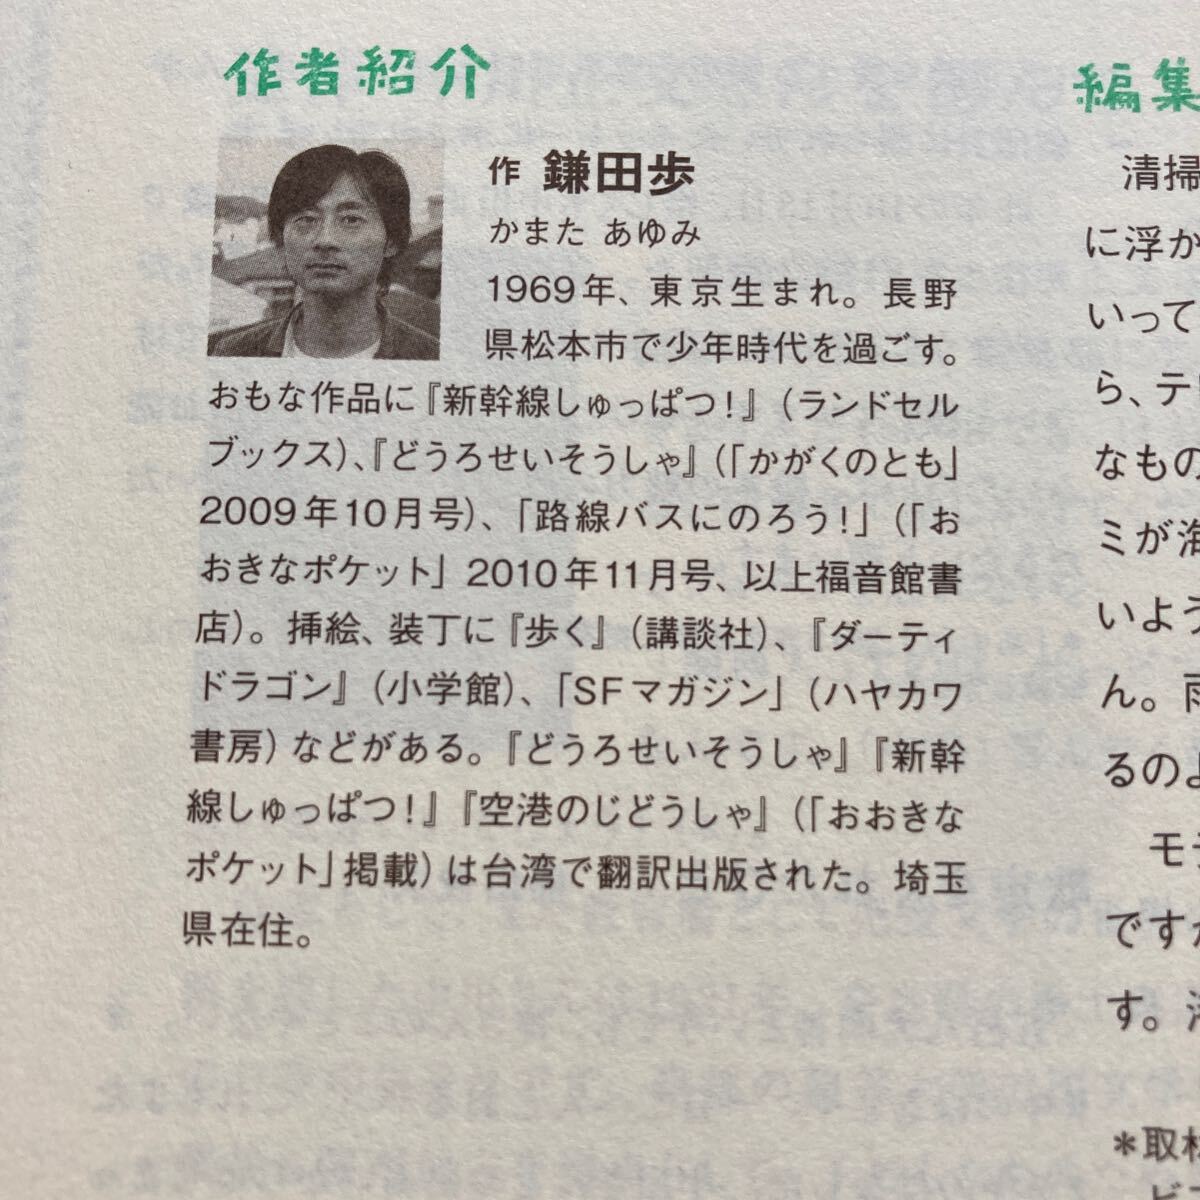 作者紹介
作 鎌田歩
かまた あゆみ
1969年、東京生まれ。長野
県松本市で少年時代を過ごす。
おもな作品に『新幹線しゅっぱつ!』(ランドセル
ブックス)、『どうろせいそうしゃ』(「かがくのとも」
2009年10月号)、「路線バスにのろう!」(「お
おきなポケット」2010年11月号、以上福音館書
店)。挿絵、装丁に『歩く』(講談社)、『ダーティ
ドラゴン』(小学館)、「SFマガジン」(ハヤカワ
書房)などがある。『どうろせいそうしゃ』『新幹
線しゅっぱつ!』『空港のじどうしゃ』(「おおきな
ポケット」掲載)は台湾で翻訳出版された。埼玉
県在住。
編集
清掃
に浮か
いって
ら、テ
なもの
ミが海
いよう
ん。雨
るのよ
モ
ですが
す。
*取材